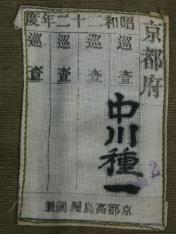 京都府
昭和二十二年度
巡查
巡查
巡查
巡查
中川種一
京都髙島屋調製